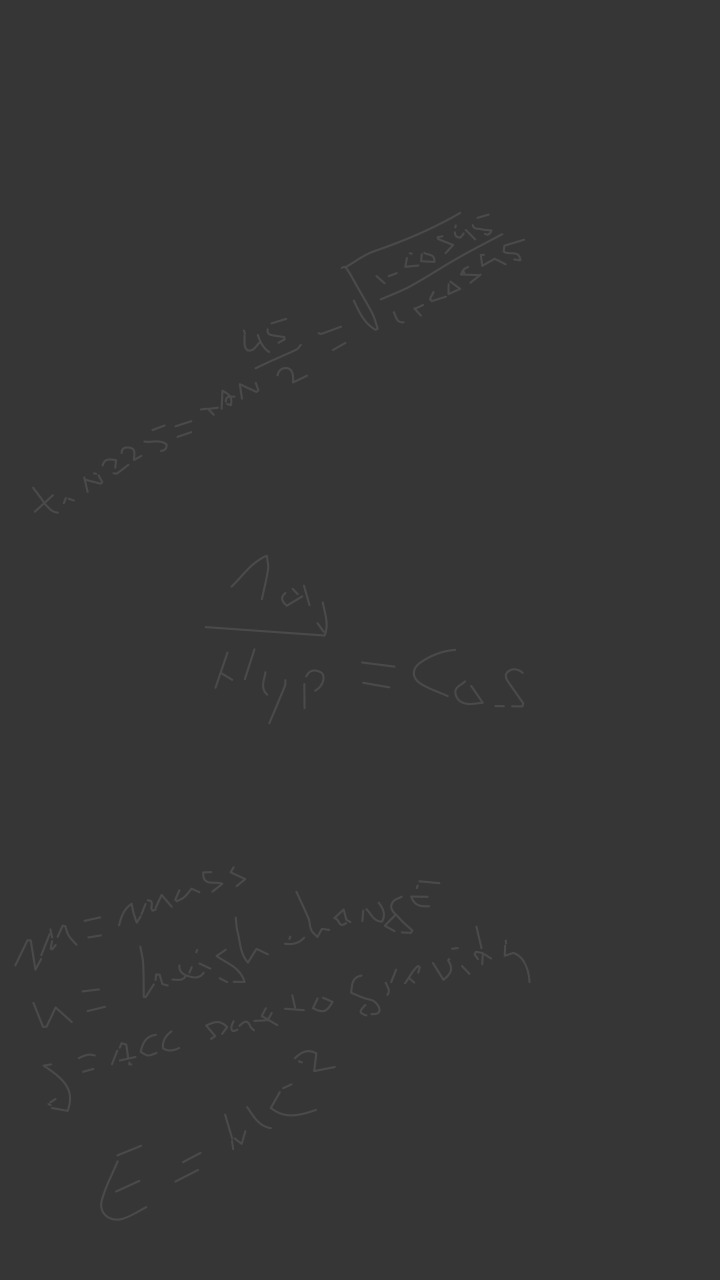 tan225=TAN 45/2 = √(1-cos45/1+cos45)
Adj/Hyp = Cos
m = mass
h = heigh change
g = Acc due to gravity
E = MC²